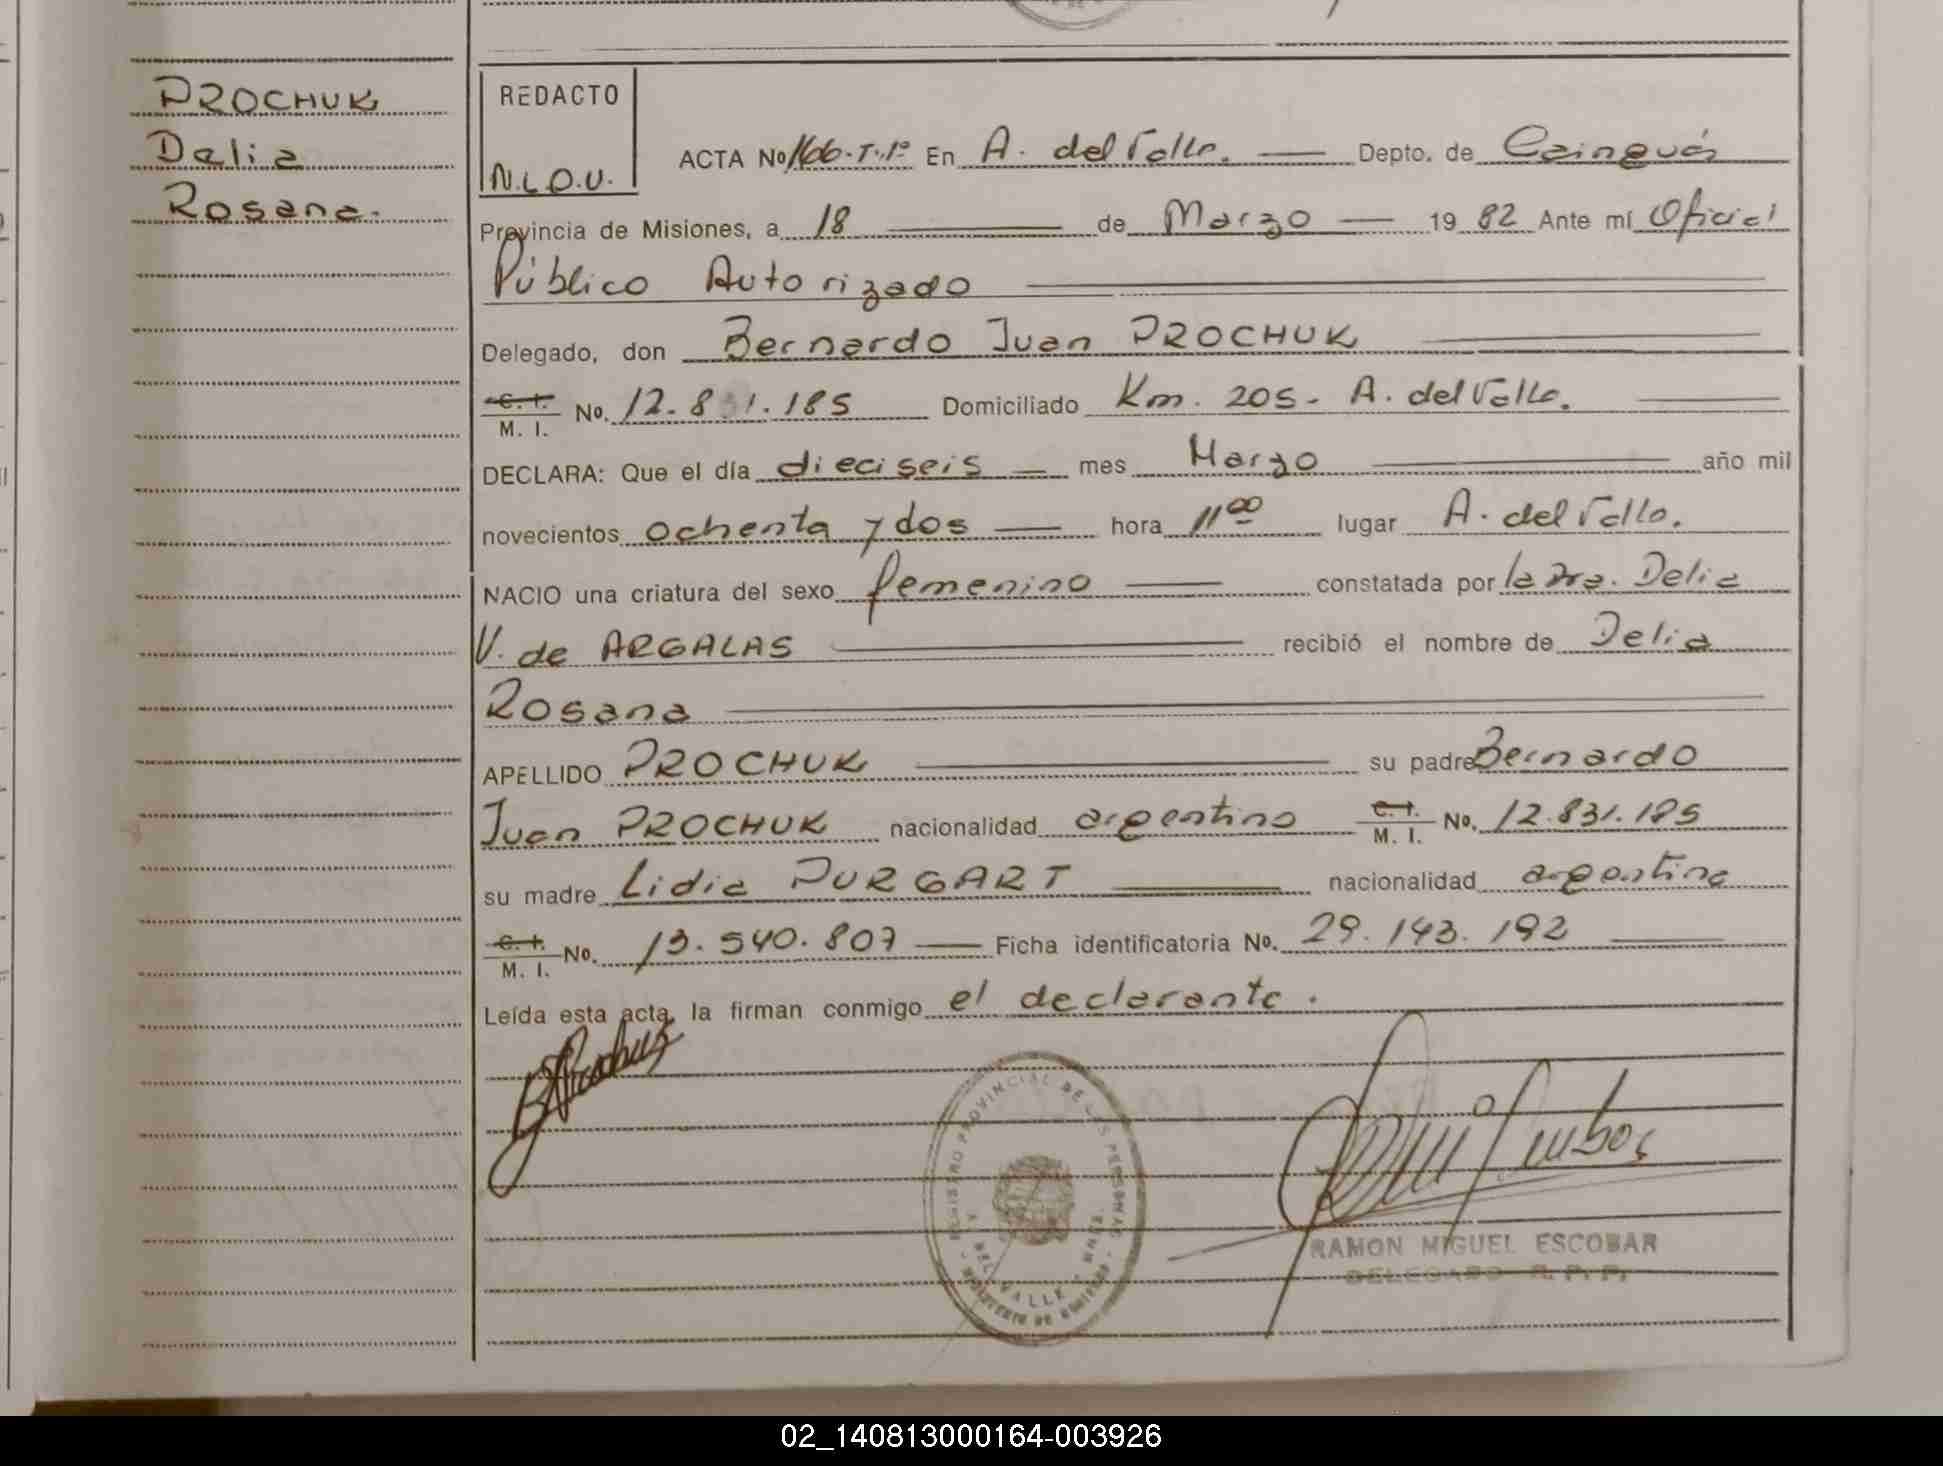 PROCHUK
Delia
Rosana.
REDACTO
N.L.O.U.
ACTA No 166-T.1º En A. del Valle. Depto. de Cainguás
Provincia de Misiones, a 18 de Marzo 19 82 Ante mí Oficial
Público Autorizado
Delegado, don Bernardo Juan PROCHUK
C. I. M. I. No. 12.831.185 Domiciliado Km. 205 - A. del Valle.
DECLARA: Que el día dieciseis mes Marzo año mil
novecientos ochenta y dos hora 11 00 lugar A. del Valle.
NACIO una criatura del sexo femenino constatada por la Dra. Delia
V. de ARGALAS recibió el nombre de Delia
Rosana
APELLIDO PROCHUK su padre Bernardo
Juan PROCHUK nacionalidad argentino C. I. M. I. No. 12.831.185
su madre Lidia PURGART nacionalidad argentina
C. I. M. I. No. 13.540.807 Ficha identificatoria No. 29.143.192
Leída esta acta, la firman conmigo el declarante.
REGISTRO PROVINCIAL DE LAS PERSONAS
DEL VALLE
RAMON MIGUEL ESCOBAR
DELEGADO R. P. P.
02_140813000164-003926